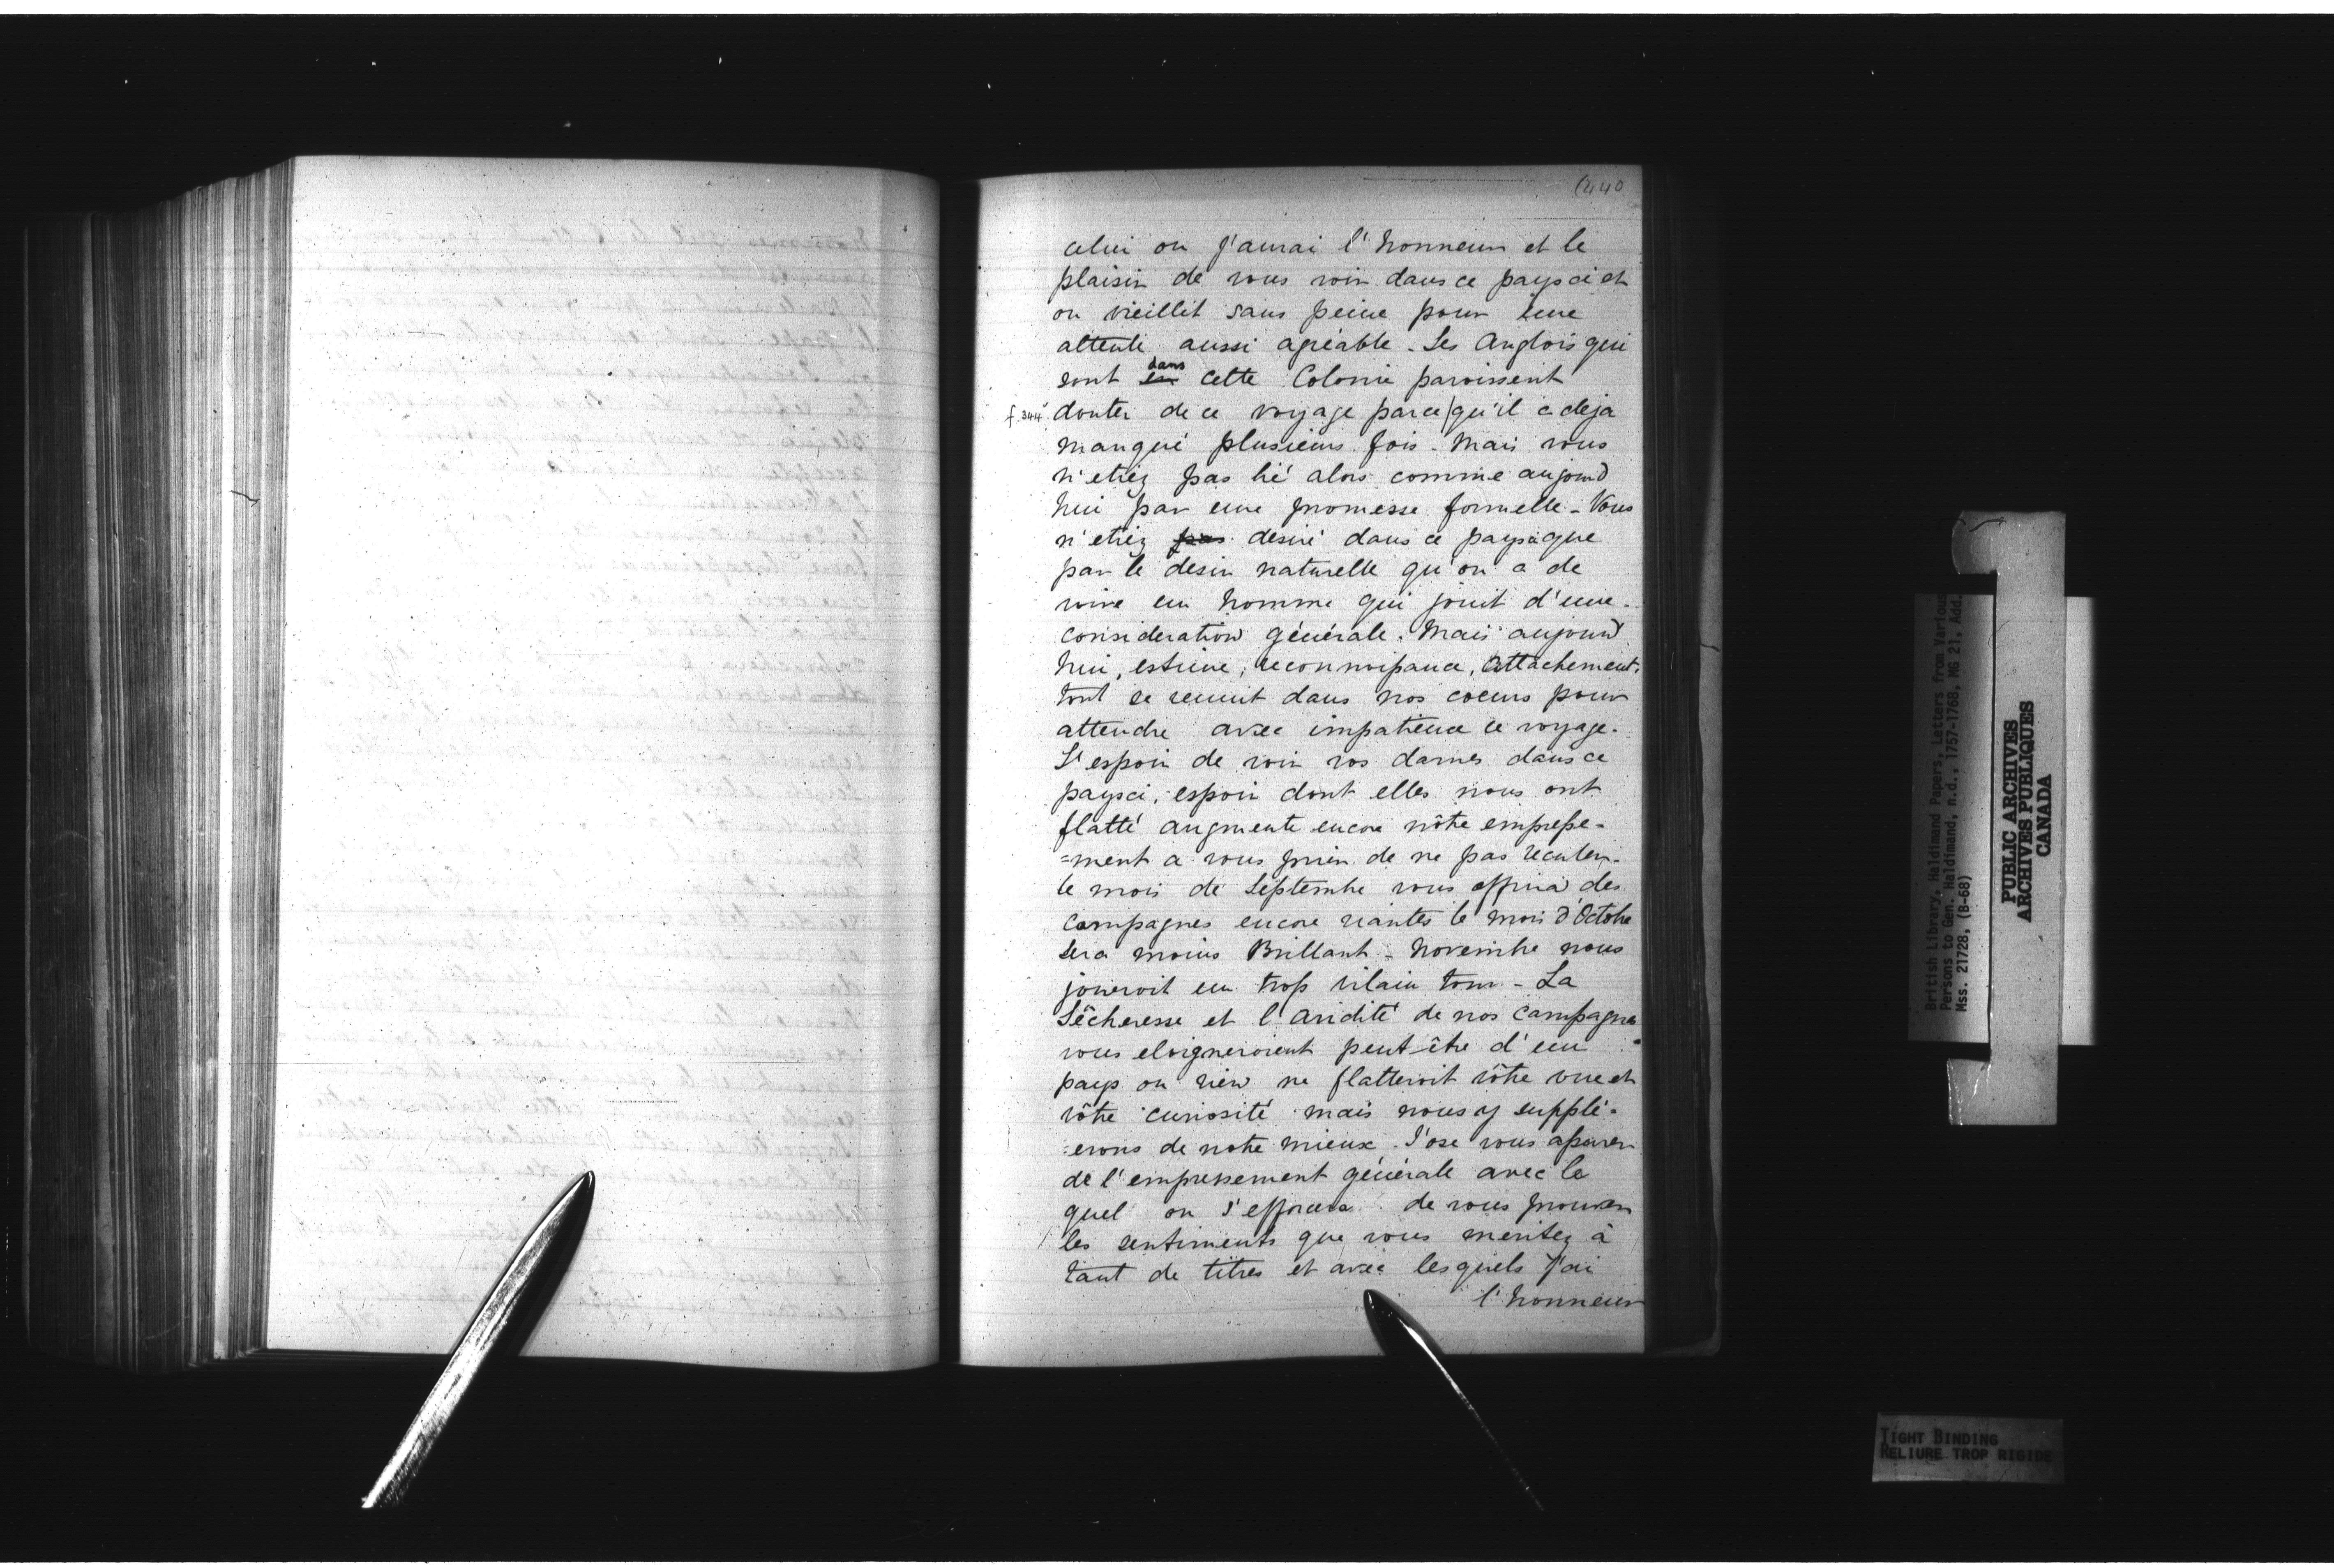 (440
celui ou j'aurai l'honneur et le
plaisir de vous voir dans ce pays ci et
on vieillit sans peine pour une
attente aussi agréable. Les Anglois qui
sont en dans cette Colonie paroissent
f. 344 douter de ce voyage parce/qu'il a deja
manqué plusieurs fois. Mais vous
n'etiez pas lié alors comme aujourd
hui par une promesse formelle. Vous
n'etiez pas desiré dans ce paysi que
par le desir naturelle qu'on a de
voire un homme qui jouit d'une
consideration générale. Mais aujourd
hui, estime, reconnoissance, attachement,
tout se reunit dans nos coeurs pour
attendre avec impatience ce voyage.
L'espoir de voir vos dames dans ce
paysci, espoir dont elles nous ont
flatté augmente encore nôtre empresse-
=ment a vous prier de ne pas reculer.
le mois de Septembre vous offrira des
campagnes encore riantes le mois d'Octobre
sera moins Brillant - Novembre nous
joueroit un trop vilain tour - La
Sêcheresse et l'aridité de nos campagnes
vous eloigneroient peut-être d'un
pays ou rien ne flatteroit vôtre vue et
vôtre curiosité mais nous y supplé-
erons de notre mieux. J'ose vous assurer
de l'empressement générale avec le
quel on s'efforcera de vous prouver
les sentiments que vous meritez à
tant de titres et avec lesquels j'ai
l'honneur
British Library, Haldimand Papers, Letters from Various
Persons to Gen. Haldimand, n.d., 1757-1768, MG 21, Add.
Mss. 21728, (B-68)
PUBLIC ARCHIVES
ARCHIVES PUBLIQUES
CANADA
TIGHT BINDING
RELIURE TROP RIGIDE